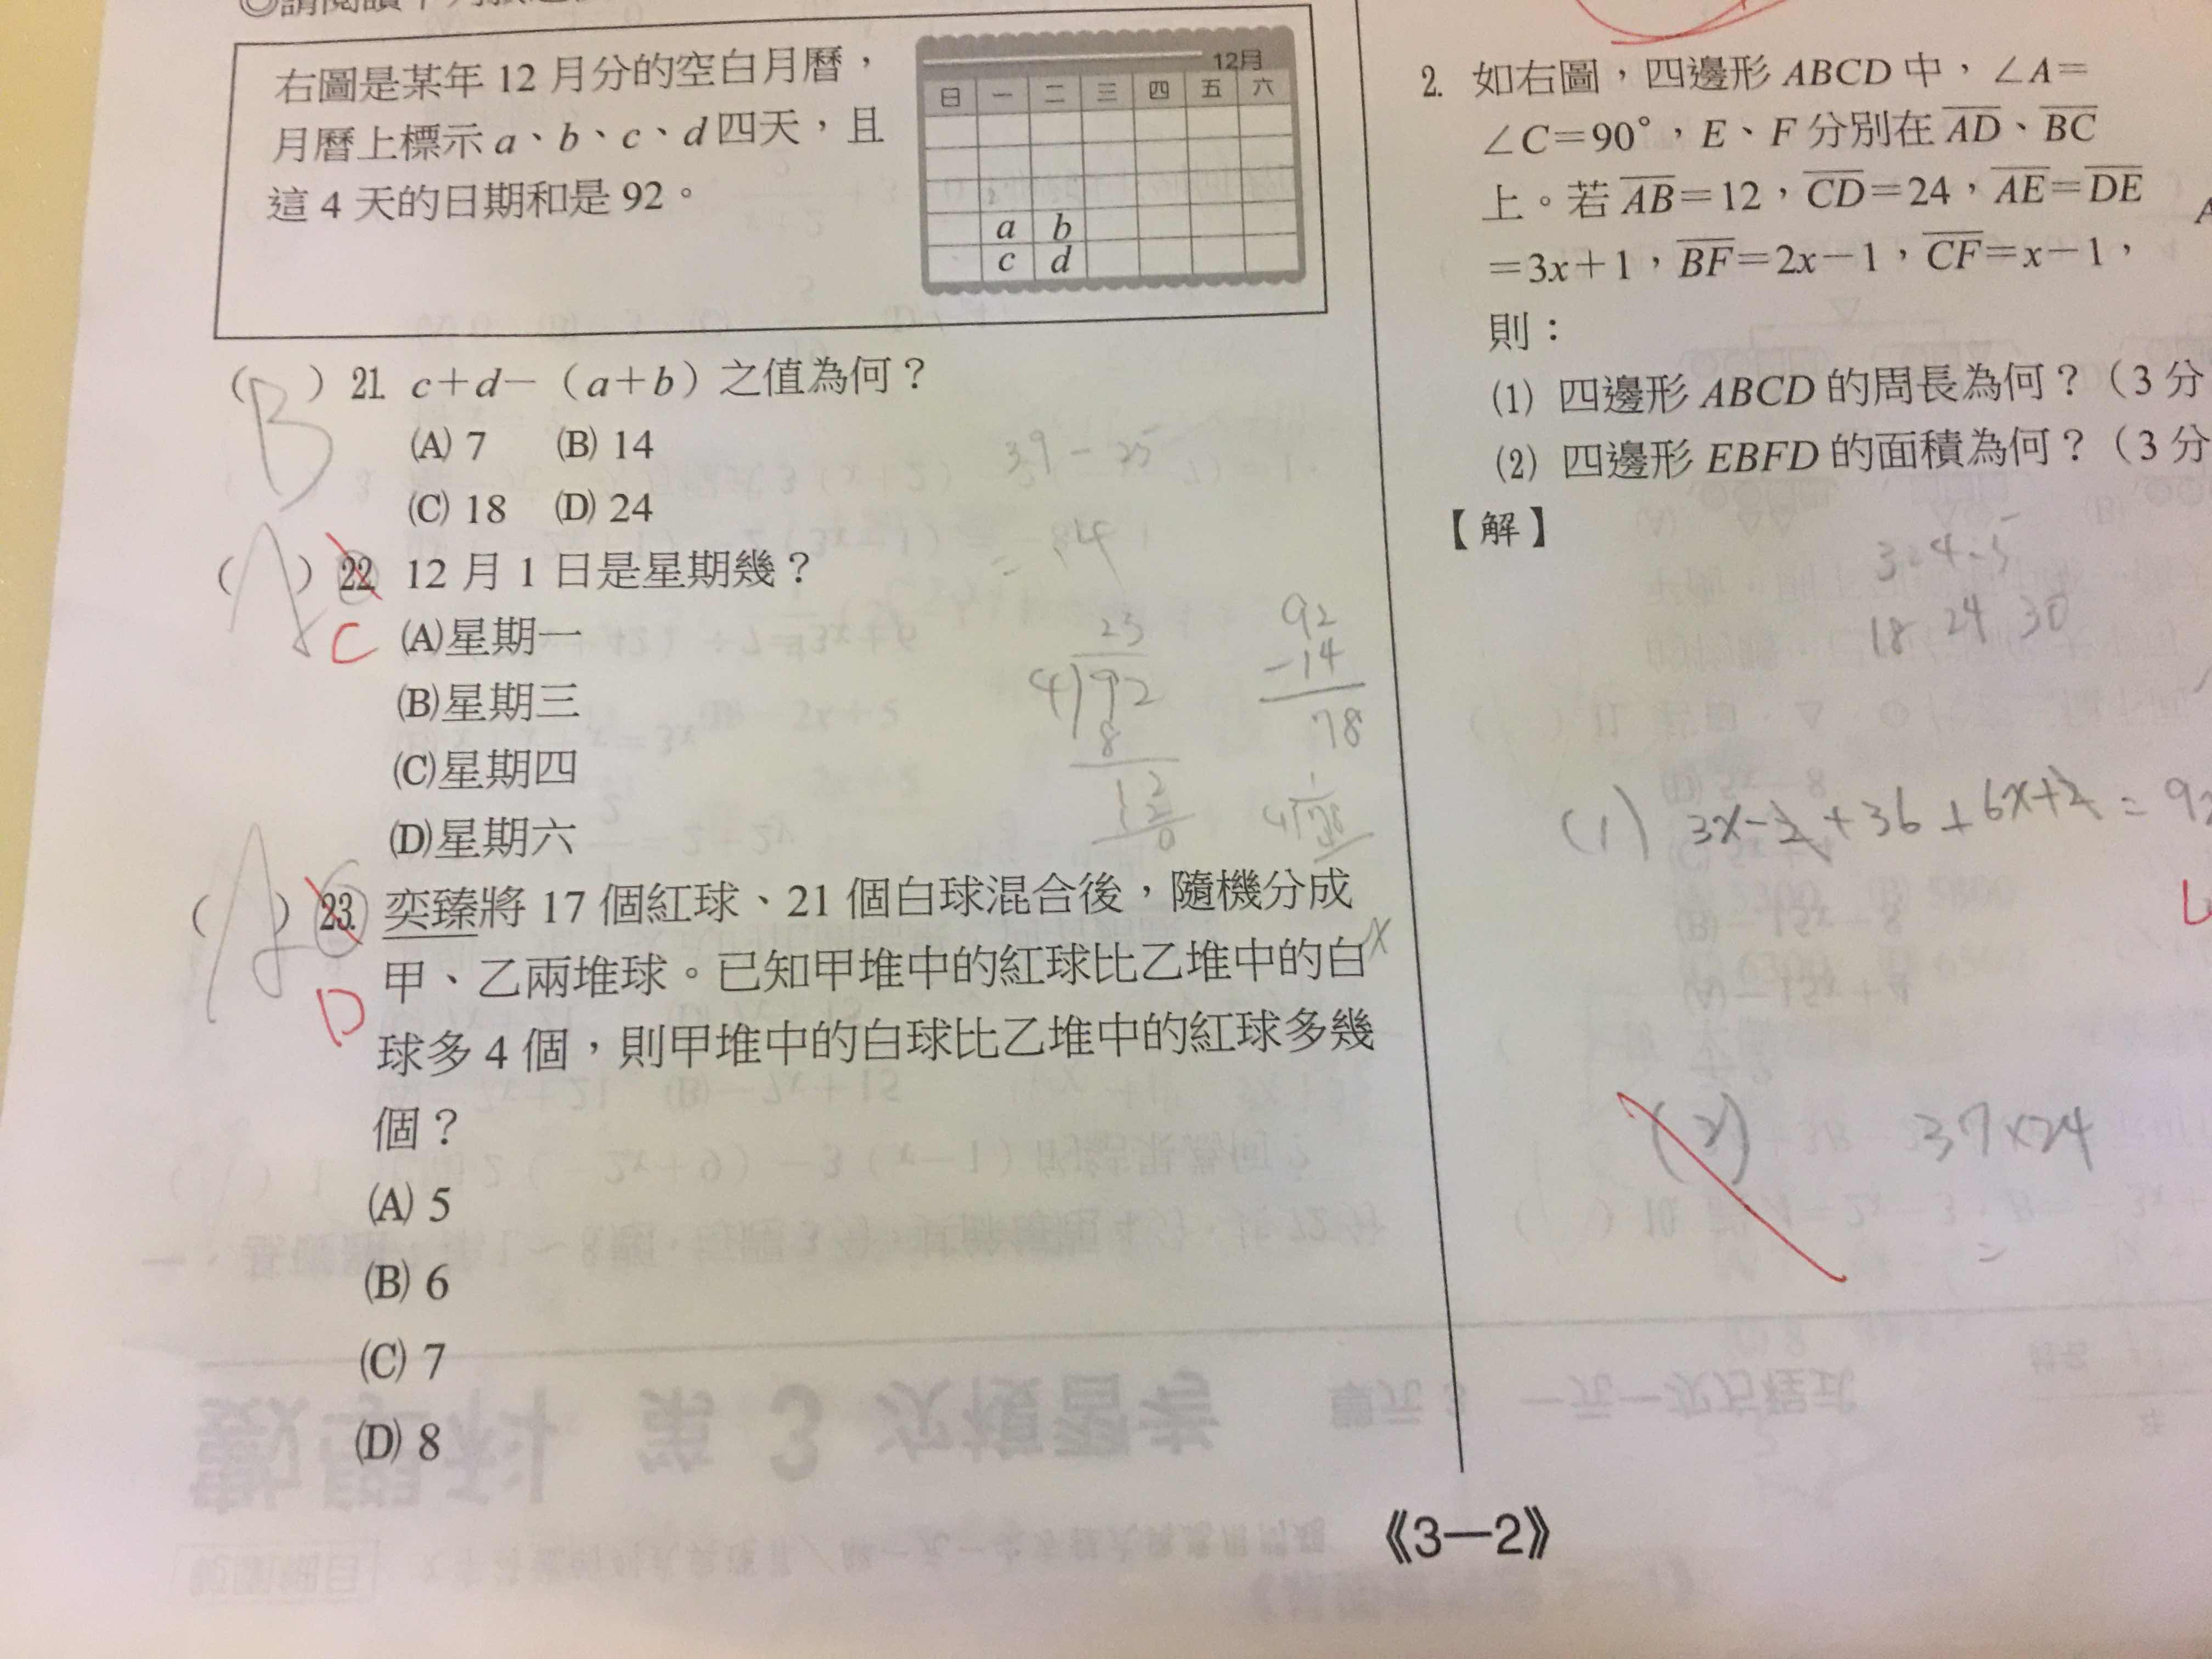 右圖是某年 12 月分的空白月曆，
月曆上標示 a、b、c、d 四天，且
這 4 天的日期和是 92。
12月
日 一 二 三 四 五 六
a b
c d
( B ) 21. c＋d－（a＋b）之值為何？
(A) 7 (B) 14
(C) 18 (D) 24
( A ) 22. 12 月 1 日是星期幾？
C (A)星期一
(B)星期三
(C)星期四
(D)星期六
( A ) 23. 奕臻將 17 個紅球、21 個白球混合後，隨機分成
甲、乙兩堆球。已知甲堆中的紅球比乙堆中的白
D 球多 4 個，則甲堆中的白球比乙堆中的紅球多幾
個？
(A) 5
(B) 6
(C) 7
(D) 8
39－25
23
4)92
8
12
92
－14
78
2. 如右圖，四邊形 ABCD 中，∠A＝
∠C＝90°，E、F 分別在 AD、BC
上。若 AB＝12，CD＝24，AE＝DE
＝3x＋1，BF＝2x－1，CF＝x－1，
則：
(1) 四邊形 ABCD 的周長為何？（3 分
(2) 四邊形 EBFD 的面積為何？（3 分
【解】
18 24 30
(1) 3x－2＋36＋6x＋2＝9x
(2) 37×24
＝
《3—2》